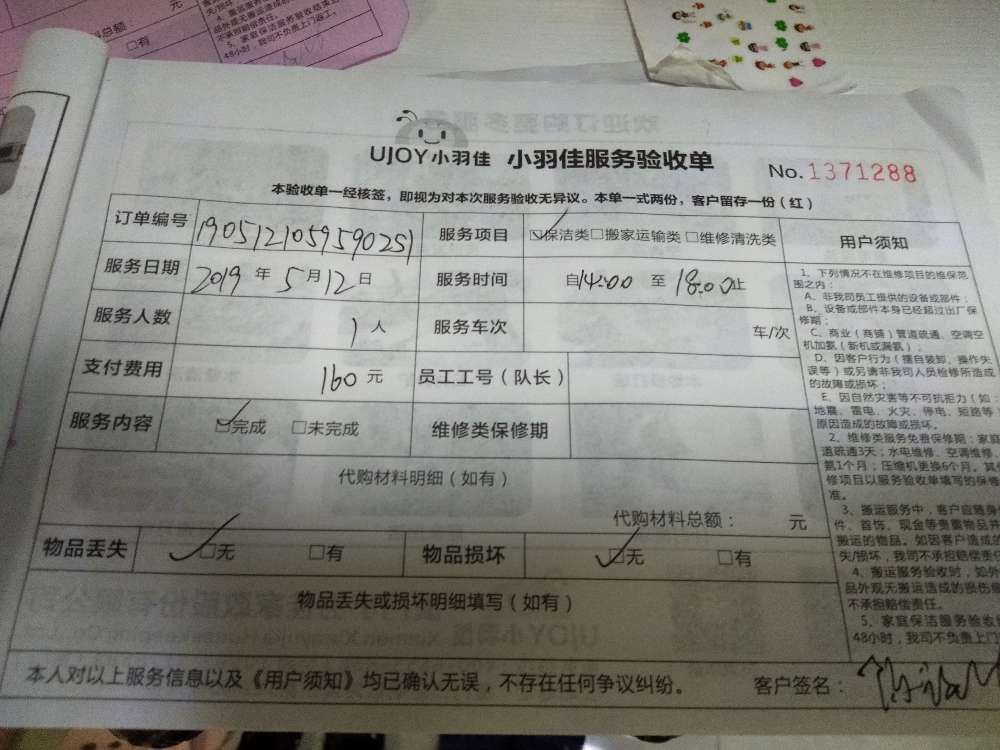 元
总额
□有
不承担赔偿责任。
5、家庭保洁服务验收结束
48小时，我司不负责上门返工。
UJOY小羽佳 小羽佳服务验收单
No.1371288
本验收单一经核签，即视为对本次服务验收无异议。本单一式两份，客户留存一份（红）
订单编号 1905121059590251 服务项目 ☑保洁类□搬家运输类□维修清洗类
服务日期 2019年5月12日 服务时间 自14:00至18:00止
服务人数 1人 服务车次 车/次
支付费用 160元 员工工号（队长）
服务内容 ☑完成 □未完成 维修类保修期
代购材料明细（如有）
代购材料总额： 元
物品丢失 ☑无 □有 物品损坏 ☑无 □有
物品丢失或损坏明细填写（如有）
本人对以上服务信息以及《用户须知》均已确认无误，不存在任何争议纠纷。 客户签名：
用户须知
1、下列情况不在维修项目的维保范
围之内：
A、非我司员工提供的设备或部件；
B、设备或部件本身已经超过出厂保
修期；
C、商业（商铺）管道疏通、空调空
机加氨（新机或漏氨）；
D、因客户行为（擅自装卸、操作失
误等）或另请非我司人员检修所造成
的故障或损坏；
E、因自然灾害等不可抗拒力（如：
地震、雷电、火灾、停电、短路等
原因造成的故障或损坏。
2、维修类服务免费保修期：家庭
道疏通3天；水电维修、空调维修、
氨1个月；压缩机更换6个月。其
修项目以服务验收单填写的保修
准。
3、搬运服务中，客户应随身
件、首饰、现金等贵重物品并
搬运的物品。如因客户造成的
失/损坏，我司不承担赔偿责
4、搬运服务验收时，如外
品外观无搬运造成的损伤
不承担赔偿责任。
5、家庭保洁服务验收
48小时，我司不负责上门